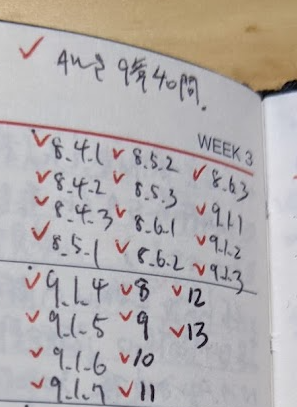 ✓ 9章40問.
WEEK 3
✓8.4.1 ✓8.5.2 ✓8.6.3
✓8.4.2 ✓8.5.3 ✓9.1.1
✓8.4.3 ✓8.6.1 ✓9.1.2
✓8.5.1 ✓8.6.2 ✓9.1.3
✓9.1.4 ✓8 ✓12
✓9.1.5 ✓9 ✓13
✓9.1.6 ✓10
✓9.1.7 ✓11